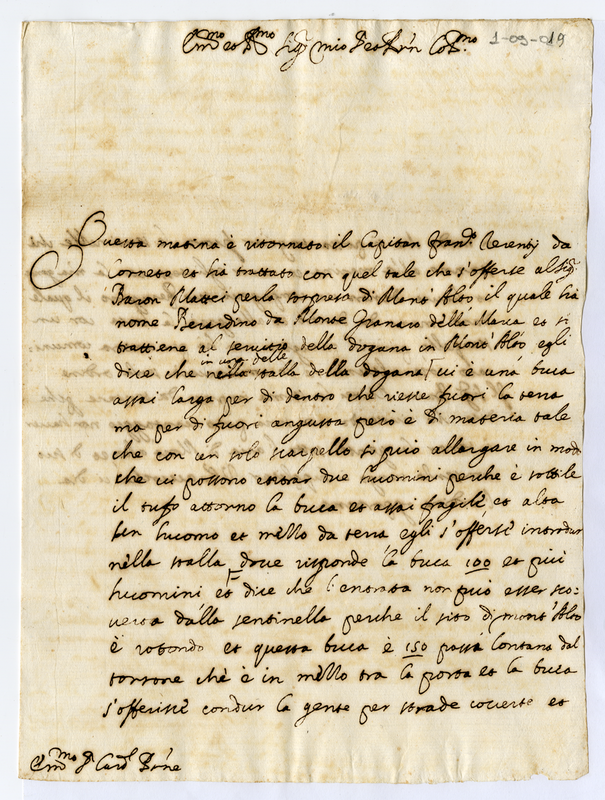 Em.mo et R.mo Sig.r mio et Prn Col.mo
1-09-019
Questa matina è ritornato il Capitan Fran.o Cerentij da
Corneto et hà trattato con quel tale che s'offerse al Sig.r
Baron Mattei per la sorpresa di Mont'Alto il quale hà
nome Berardino da Monte Granaro della Marca et si
trattiene al servitio della dogana in Mont'Alto egli
in una delle
dice che nella stalla della dogana vi è una buca
assai larga per di dentro che riesce fuori la terra
ma per di fuori angusta però è di materia tale
che con un solo scarpello si può allargare in modo
che vi possono entrar due huomini perche è sottile
il tufo attorno la buca et assai fragile, et alta
un huomo et mezzo da terra egli s'offerisce introdur
nella stalla dove risponde la buca 100 et più
huomini et dice che l'entrata non può esser sco:
verta dalla sentinella perche il sito di Mont'Alto
è rotondo et questa buca è 150 passa lontana dal
torrone che è in mezzo tra la porta et la buca
s'offerisce condur la gente per strade coverte et
Em.mo S.r Card.l Prñe